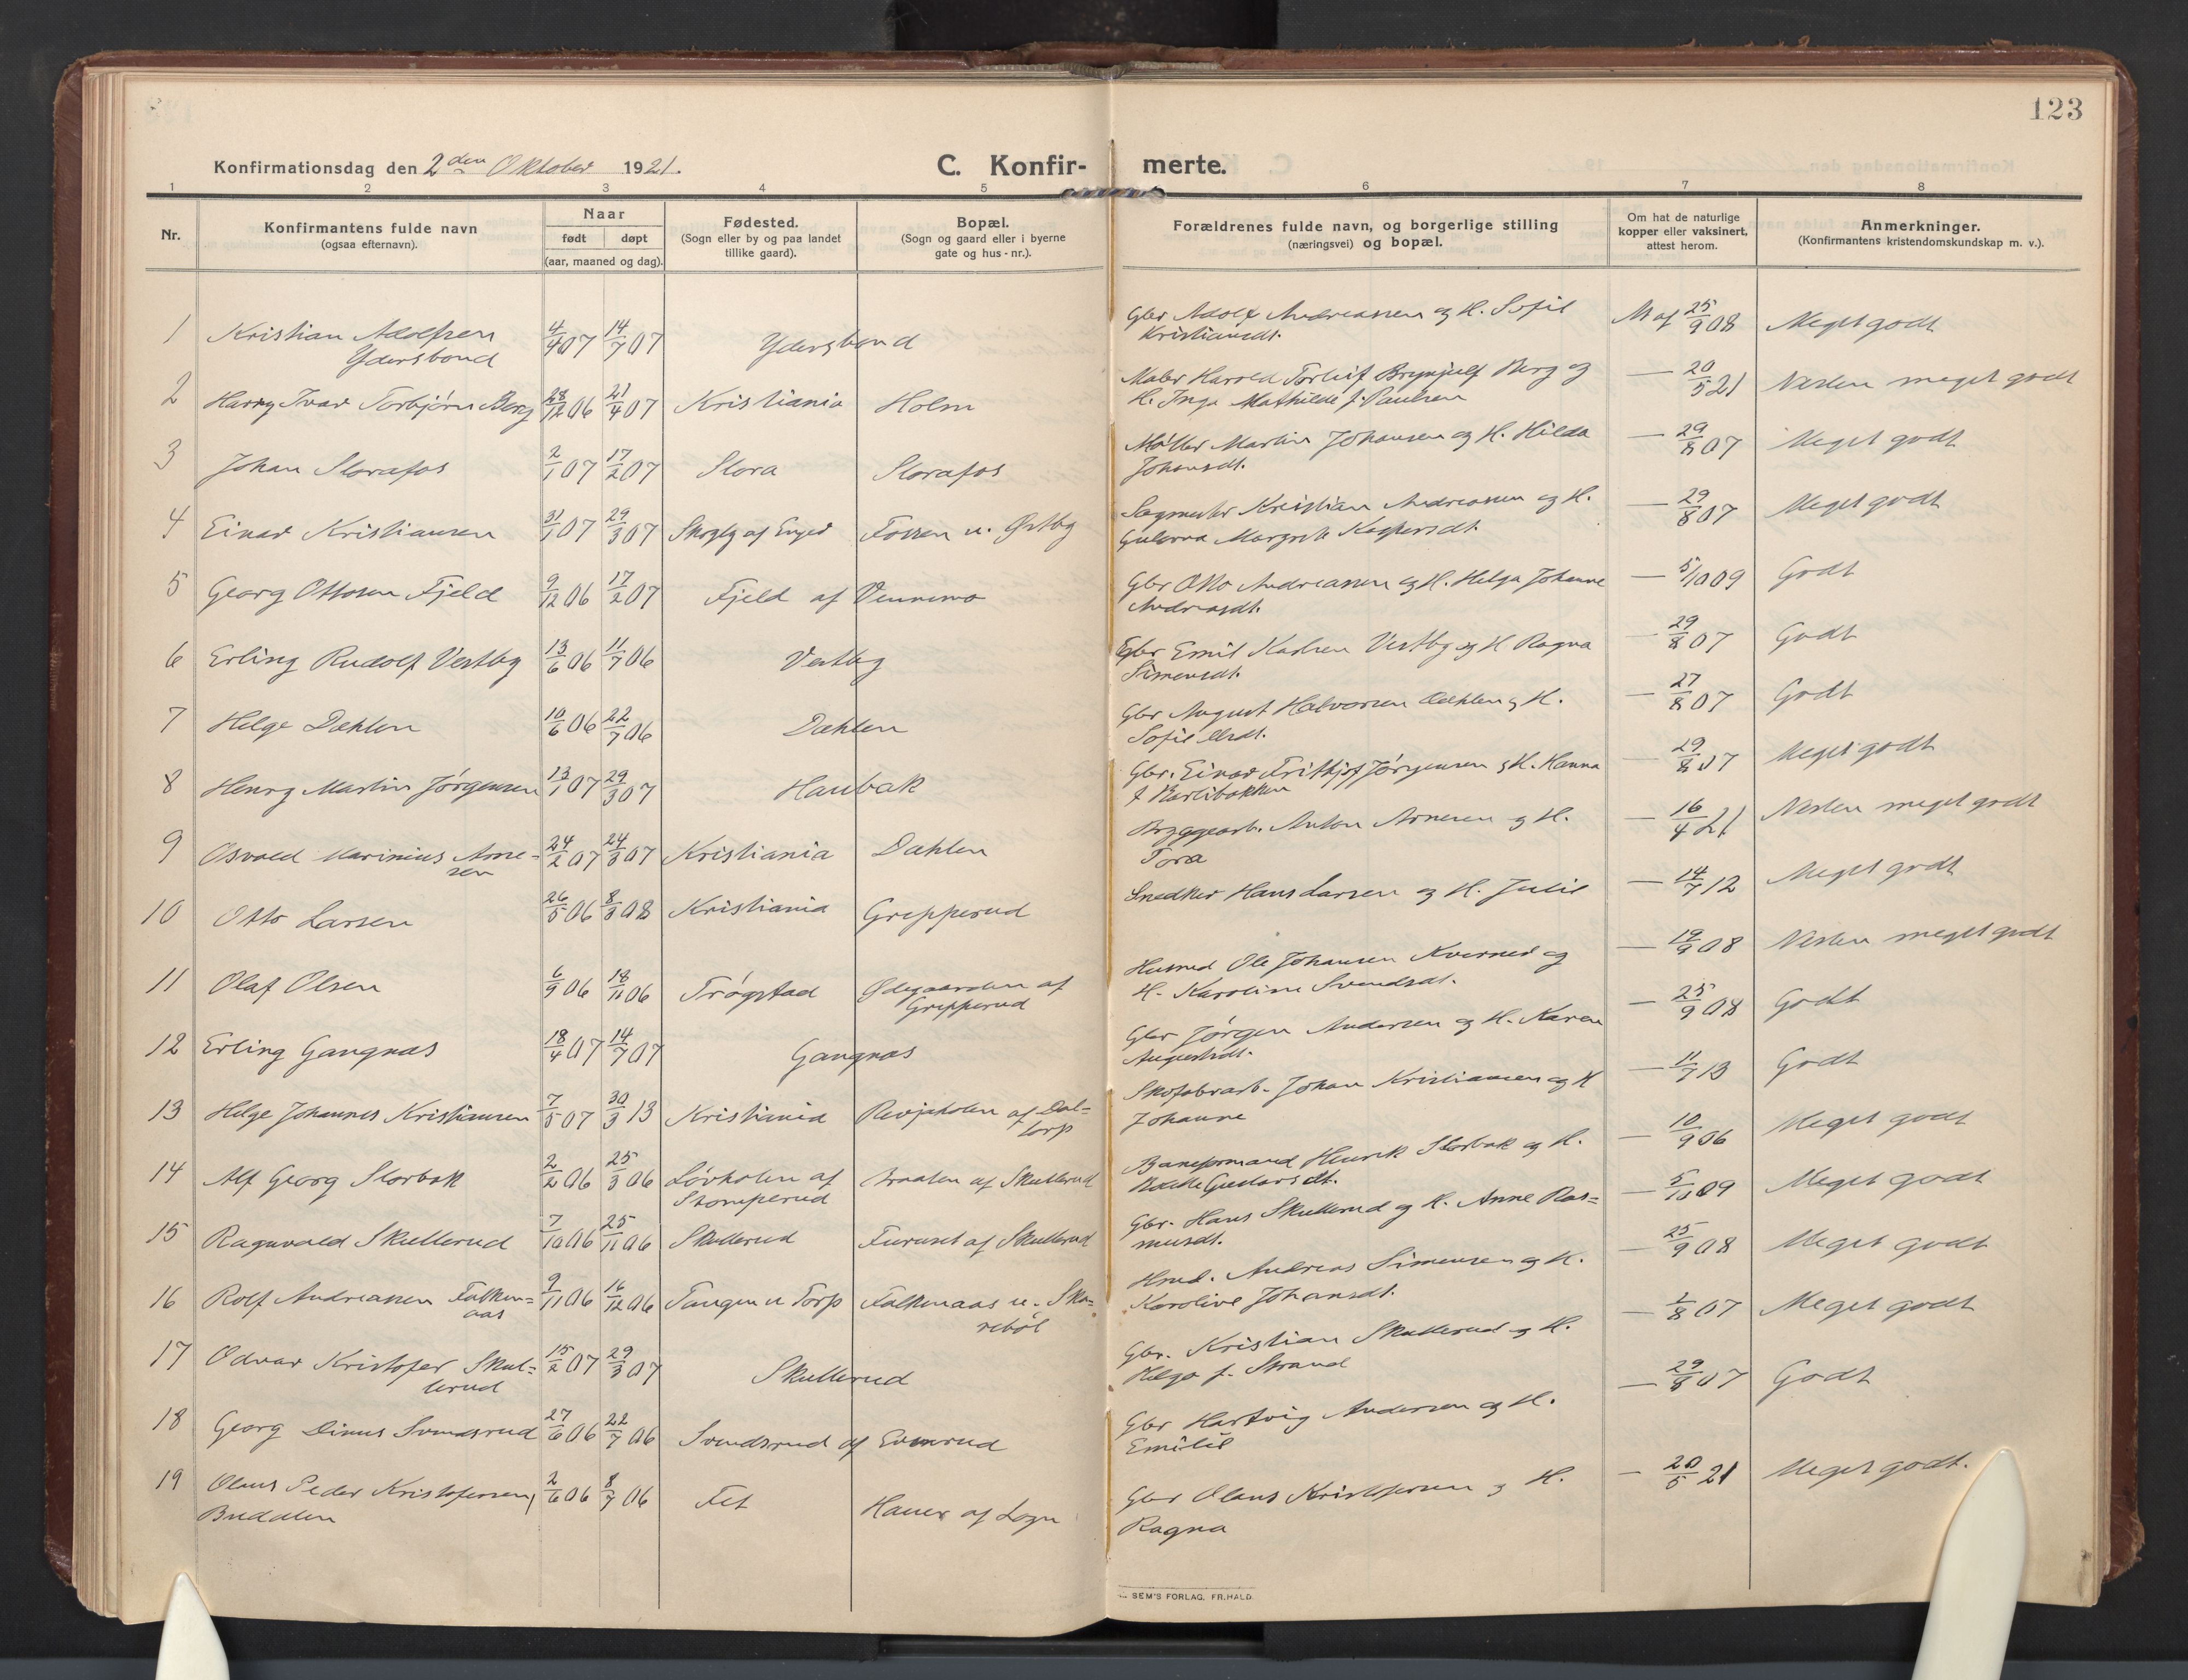 123
Konfirmationsdag den 2den Oktober 1921.
C. Konfir- merte.
1 2 3 4 5 6 7 8
Nr.
Konfirmantens fulde navn
(ogsaa efternavn).
Naar
født døpt
(aar, maaned og dag).
Fødested.
(Sogn eller by og paa landet
tillike gaard).
Bopæl.
(Sogn og gaard eller i byerne
gate og hus-nr.).
Forældrenes fulde navn, og borgerlige stilling
(næringsvei) og bopæl.
Om hat de naturlige
kopper eller vaksinert,
attest herom.
Anmerkninger.
(Konfirmantens kristendomskundskap m. v.).
1 Kristian Adolfsen 4/4 07 14/7 07 Ydersbond Gbr Adolf Andreassen og H. Sofie 25/9 08 Meget godt
Ydersbond Kristiansdt.
2 Harry Ivar Torbjørn Berg 28/12 06 21/4 07 Kristiania Holm Maler Harald Torleif Brynjulf Berg og — 20/5 21 Nesten meget godt
H. Inga Mathilde f. Paulsen
3 Johan Slorafos 2/1 07 17/2 07 Slora Slorafos Møller Martin Johansen og H. Hilda — 29/8 07 Meget godt
Johansdt.
4 Einar Kristiansen 31/1 07 29/3 07 Fossen u. Østby Sagmester Kristian Andreassen og H. — 29/8 07 Meget godt
Margrete Kaspersdt.
5 Georg Ottosen Fjeld 9/12 06 17/2 07 Fjeld af Vennemo Gbr Otto Andreassen og H. Helga Johanne — 5/10 09 Godt
Andreasdt.
6 Erling Rudolf Vestby 13/6 06 11/7 06 Vestby Gbr Emil Karlsen Vestby og H Ragna — 29/8 07 Godt
Simensdt.
7 Helge Dahlen 10/6 06 22/7 06 Dahlen Gbr August Halvorsen Dahlen og H. — 27/8 07 Godt
Sofie
8 Henry Martin Jørgensen 13/1 07 29/3 07 Haubak Gbr. Einar Fritjof Jørgensen og H. Hanna — 29/8 07 Meget godt
f
9 Osvald Marinius Arne- 24/2 07 24/3 07 Kristiania Dahlen Bryggearb. Anton Arnesen og H. — 16/4 21 Nesten meget godt
sen Tora
10 Otto Larsen 26/5 06 8/3 08 Kristiania Grepperud Snedker Hans Larsen og H. Julie — 14/7 12 Meget godt
11 Olaf Olsen 6/9 06 18/11 06 Trøgstad Ødegaarden af Husmd Ole Johansen og — 19/9 08 Nesten meget godt
Grepperud H. Karoline Svendsdt.
12 Erling Gangnæs 18/4 07 14/7 07 Gangnæs Gbr Jørgen Andersen og H. Karen — 25/9 08 Godt
Augustsdt.
13 Helge Johannes Kristiansen 7/5 07 30/3 13 Kristiania af Dal= Skofabrarb. Johan Kristiansen og H — 11/7 13 Godt
torp Johanne
14 Alf Georg Slorbak 2/2 06 25/3 06 Løvholen af Braaten af Skullerud Baneformand Henrik Slorbak og H. — 10/9 06 Meget godt
Stomperud Gustavsdt.
15 Ragnvald Skullerud 7/10 06 25/11 06 Skullerud Furuset af Skullerud Gbr. Hans Skullerud og H. Anne Ras= — 5/10 09 Meget godt
musdt.
16 Rolf Andreassen Falken= 9/11 06 16/12 06 Tangen u Torp Falkenaas u. Ska= Hmd. Andreas Simensen og H. — 25/9 08 Meget godt
aas rebøl Karoline Johansdt.
17 Odvar Kristofer Skul= 15/2 07 29/3 07 Skullerud Gbr. Kristian Skullerud og H. — 1/8 07 Meget godt
lerud Helga f. Strand
18 Georg Dinus Svendsrud 27/6 06 22/7 06 Svendsrud af Gbr Hartvig Andersen og H. — 29/8 07 Godt
Emilie
19 Olaus Peder Kristofersen, 2/6 06 8/7 06 Fet af Gbr Olaus Kristofersen og H. — 20/5 21 Meget godt.
Ragna
SEM'S FORLAG, FR.HALD.